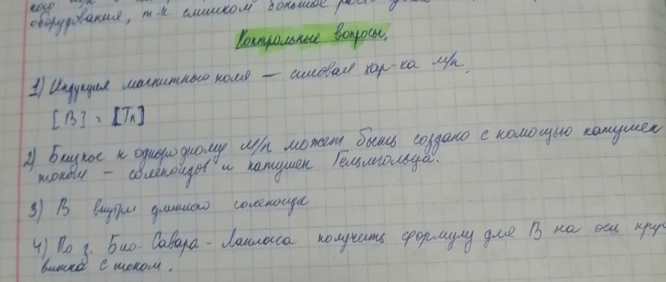 оборудования, т.к. слишком большое
Контрольные вопросы.
1) Индукция магнитного поля – силовая хар-ка м/п.
[B] = [Тл]
2) Близкое к однородному м/п может быть создано с помощью катушек
током – соленоидов и катушек Гельмгольца.
3) B внутри длинного соленоида
4) По з. Био-Савара-Лапласа получить формулу для B на оси
витка с током.